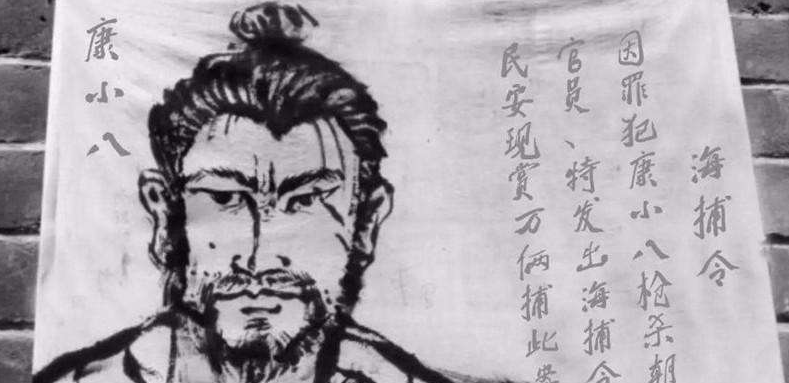 海捕令
因罪犯康小八枪杀朝
官员、特发出海捕令
民安现赏万俩捕此
康小八